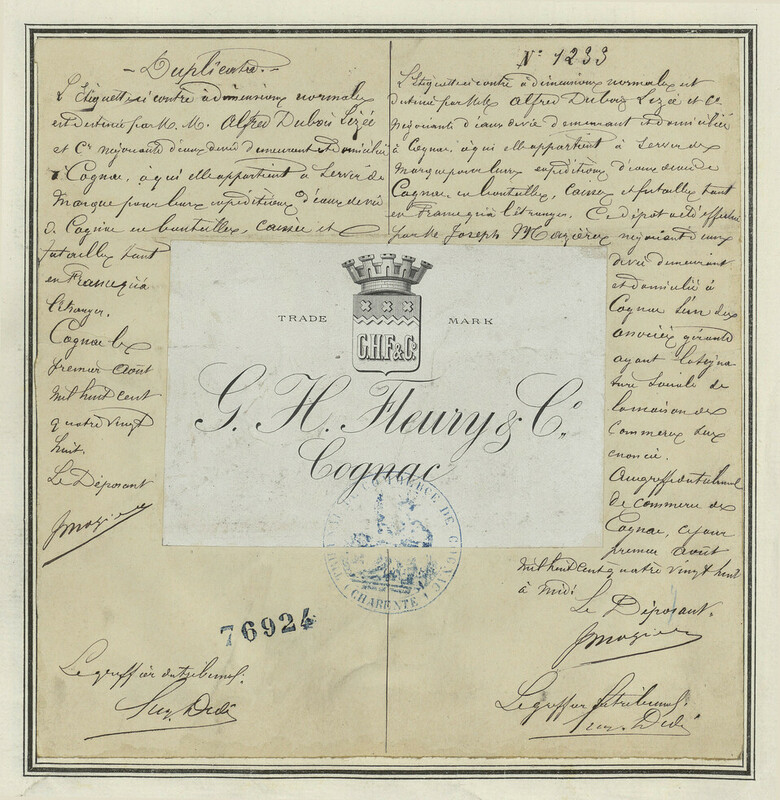 Duplicata.
L'Etiquette ci contre à dimensions normales
est destinée par M. M. Alfred Dubois Lizée
et Cie négociants d'eaux de vie demeurant et domiciliés
à Cognac, à qui elle appartient à servir de
Marque pour leurs expéditions d'eaux de vie
de Cognac en bouteilles, caisses et
futailles tant
en France qu'à
l'étranger.
Cognac le
premier Août
mil huit cent
quatre vingt
huit.
Le Déposant
Le greffier du tribunal.
N° 1233
L'Etiquette ci contre à dimensions normales est
destinée par M.M. Alfred Dubois Lizée et Cie
négociants d'eaux de vie demeurant et domiciliés
à Cognac, à qui elle appartient à servir de
Marque pour leurs expéditions d'eaux de vie de
Cognac, en bouteilles, caisses et futailles tant
en France qu'à l'étranger. Ce dépôt a été effectué
par Mr Joseph Mazières négociant d'eaux
de vie demeurant
et domicilié à
Cognac l'un des
associés gérants
ayant la signa
ture sociale de
la maison de
Commerce sus
énoncée.
Au greffe du tribunal
de commerce de
Cognac, ce jour
premier août
mil huit cent quatre vingt huit
à midi
Le Déposant.
Le greffier du tribunal.
TRADE MARK
G.H.F&Co
G. H. Fleury & Co.
Cognac
TRIBUNAL DE COMMERCE DE COGNAC
(CHARENTE)
76924